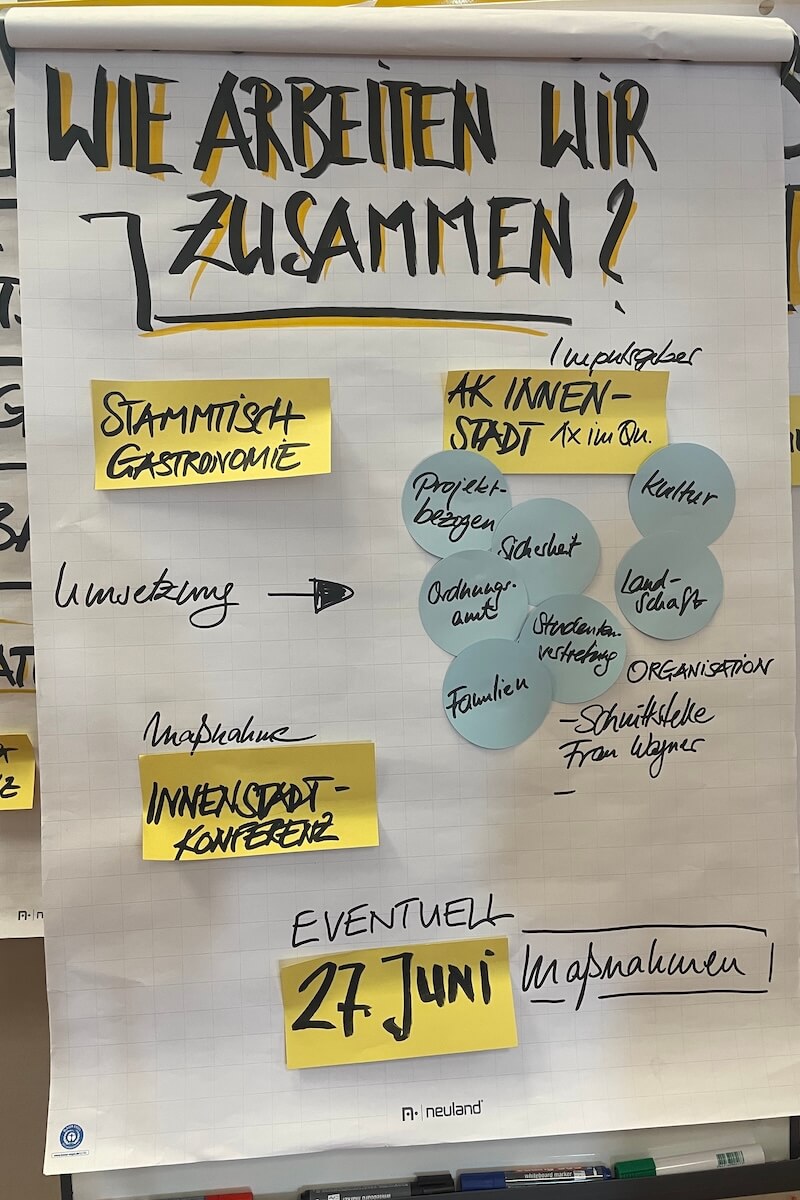 WIE ARBEITEN WIR
ZUSAMMEN?
Impulsgeber
STAMMTISCH
GASTRONOMIE
AK INNEN-
STADT 1x im Qu.
Projekt-
bezogen
Kultur
Sicherheit
Umsetzung
Ordnungs.
amt
Land-
schaft
Studenten-
vertretung
Familien
ORGANISATION
-Schnittstelle
Frau Wagner
-
Maßnahme
INNENSTADT-
KONFERENZ
EVENTUELL
27. Juni
Maßnahmen
neuland